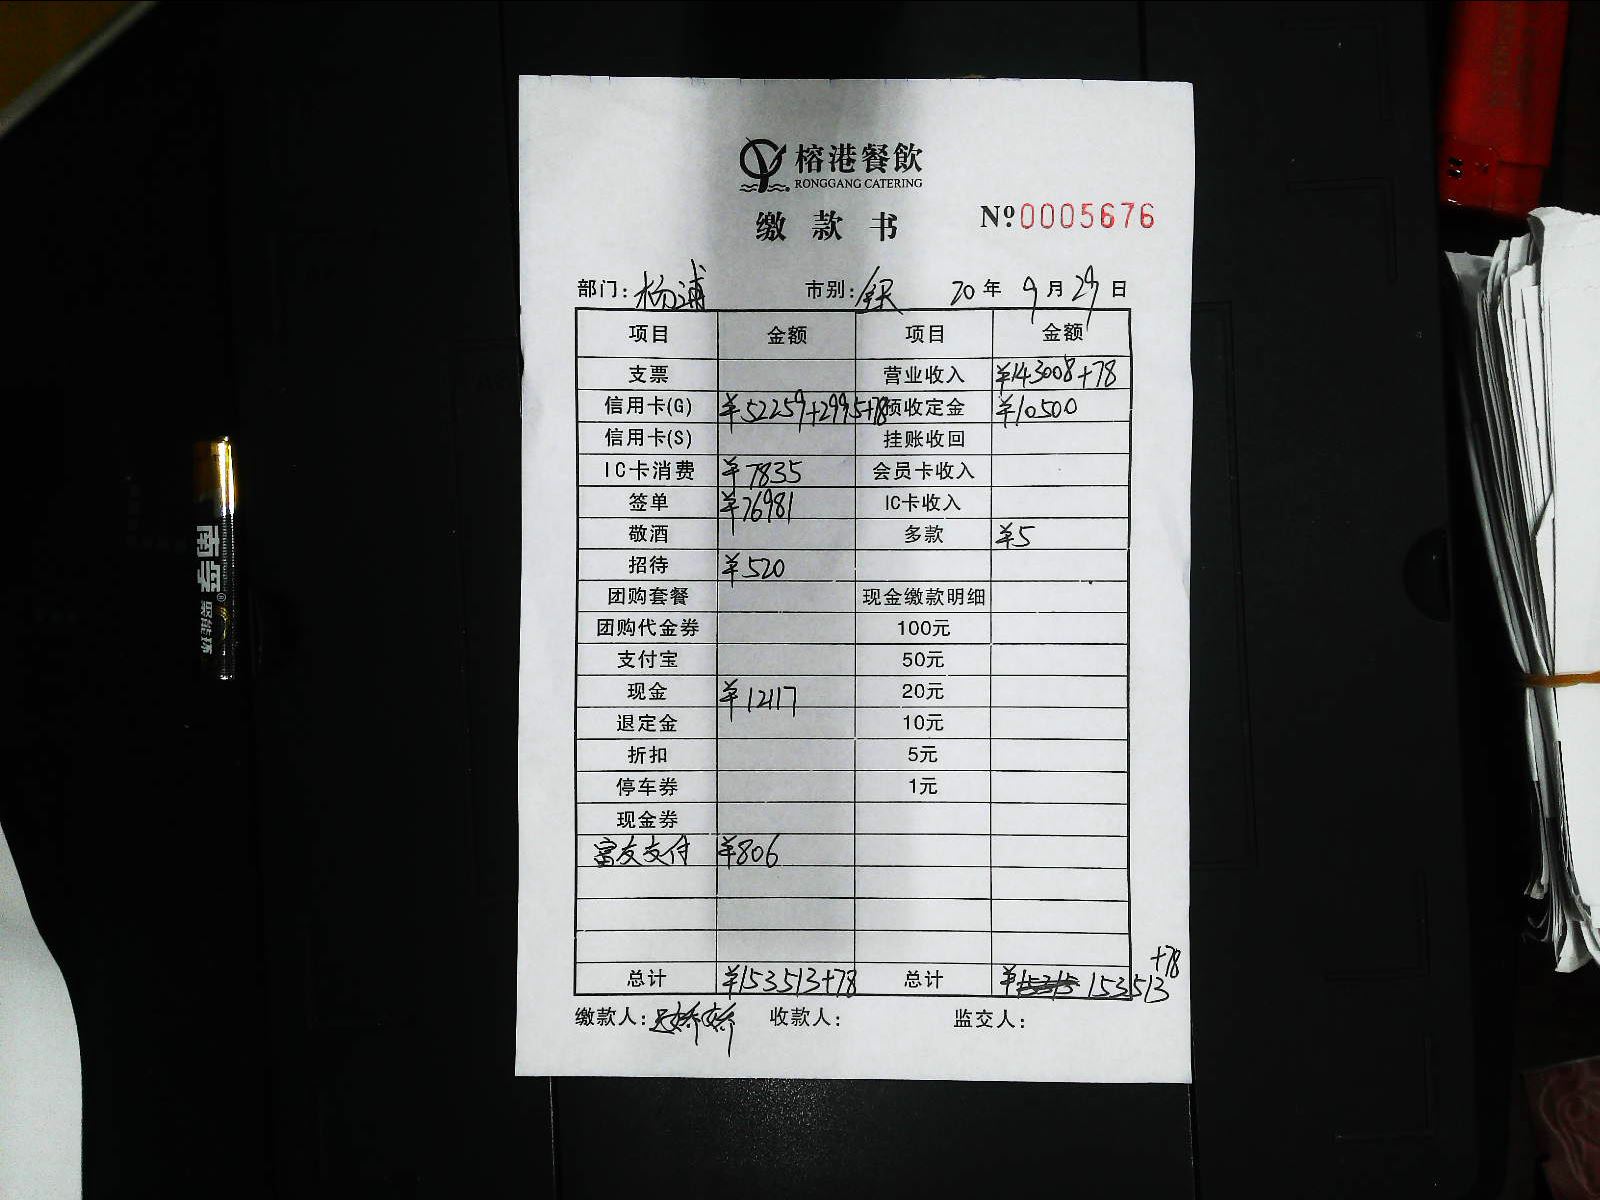 榕港餐飲
RONGGANG CATERING
缴款书
Nº0005676
部门：杨浦 市别：银 20年9月29日
项目 金额 项目 金额
支票 营业收入 ¥143008+78
信用卡(G) ¥52259+2995+78 预收定金 ¥10500
信用卡(S) 挂账收回
IC卡消费 ¥7835 会员卡收入
签单 ¥76981 IC卡收入
敬酒 多款 ¥5
招待 ¥520
团购套餐 现金缴款明细
团购代金券 100元
支付宝 50元
现金 ¥12117 20元
退定金 10元
折扣 5元
停车券 1元
现金券
富友支付 ¥806
总计 ¥153513+78 总计 ¥153513+78
缴款人： 收款人： 监交人：
南孚®
聚能环